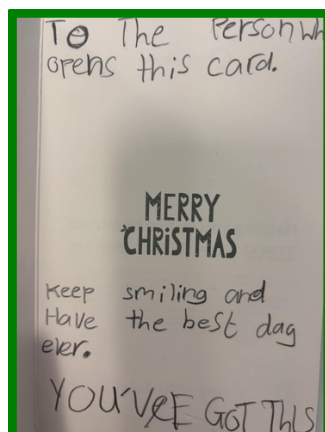 To The Person Wh
opens this card.
MERRY
CHRISTMAS
Keep smiling and
Have the best day
ever.
YOU'VE GOT THIS